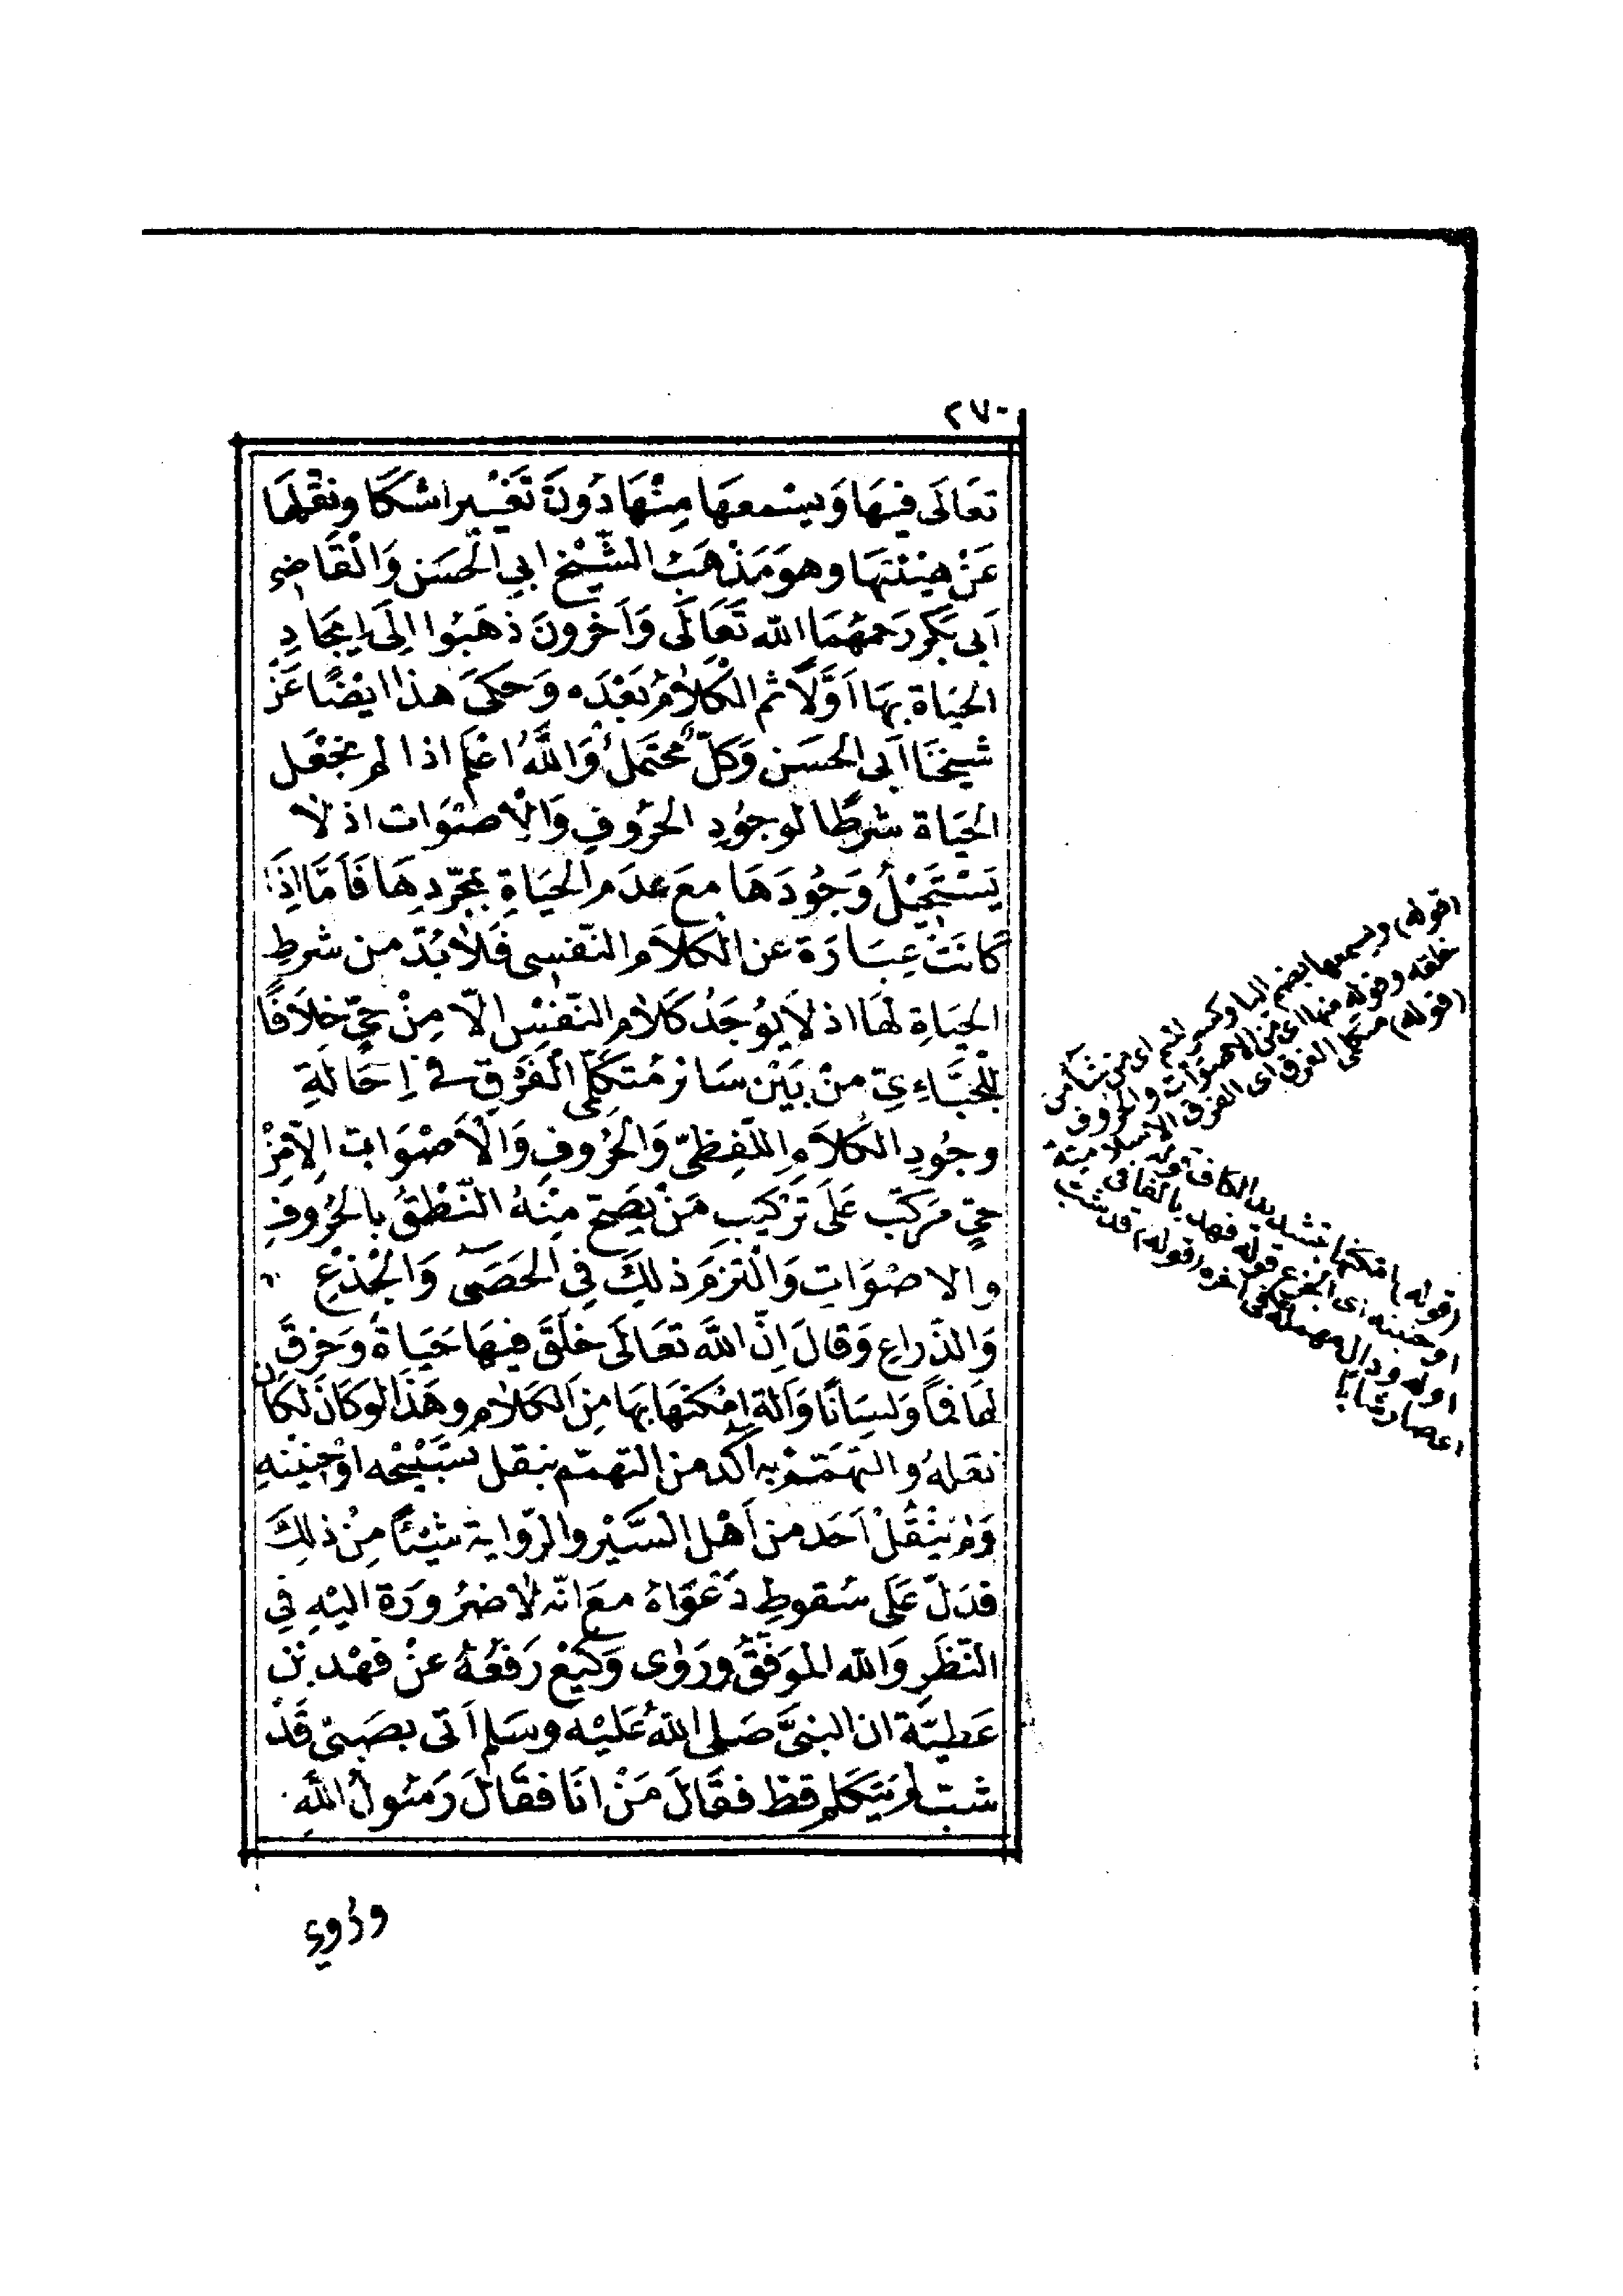 ٢٧٠
تعَالَى فيهَا وَيسْمعهَا مِنْهَا دُونَ تَغْيير اشكَا ونقْلهَا
عَنْ هيْئتهَا وهوَ مَذْهَبُ الشَّيْخ ابي الْحَسَن وَالْقَاضِى
اَبى بَكر رَحمهُمَا الله تَعَالَى وَاَخرونَ ذهَبُوا الَى اِيجَادِ
الحَيَاة بهَا اَوَّلًا ثم الْكَلَامُ بَعْدَه وَحكىَ هذا ايْضًا عَنْ
شيخنَا اَبى الحسَن وَكلّ محْتمَلٌ وَاللَّهُ اعْلم اذا لم نجْعَل
الحيَاة شرطًا لوجوُدِ الحرُوفِ وَالْاصْوَات اذ لَا
يَسْتَحِيْلُ وَجُودَهَا معَ عدَم الحيَاةِ بمجرّدِهَا فَاَمَّا اِذَا
كَانَتْ عِبَارَة عن الْكلَام النّفسى فَلَابُدّ من شرطِ
الحيَاةِ لهَا اذ لَا يوُجَدُ كَلَام النّفسْ الّا مِنْ حىّ خِلَافًا
للْجبّاءىّ منْ بَيْن سَائر مُتكَلّمى الْفَرْقِ في اِحَالةِ
وجوُدِ الكلَامِ اللّفظىّ وَالْحُرُوفِ وَالْاَصْوَاتِ الّا مِنْ
حىّ مركّب عَلَى ترْكيبِ مَنْ يَصحّ مِنْهُ النّطْقُ بالحُروفِ
والاصْوَاتِ وَالْتزمَ ذلكَ فى الحَصَى وَالْجِذْعِ
وَالذّراعِ وَقالَ اِنّ اللَّهَ تعَالَى خلَقَ فيهَا حَيَاةً وَخرقَ
لهَا فمًا وَلسَانًا وَآلةً اَمْكَنهَا بهَا مِنَ الكلَام وهَذَا لوكَانَ لكَانَ
نقلهُ والتهَمّمْ بِه آكد من التهمّم بنقل تسْبيْحه اوْ حَنينهِ
وَلم ينْقُلْ اَحَد من اَهْل السّيَر والرّواية شيْئًا مِنْ ذلِكَ
فدَلّ عَلَى سُقوطِ دَعْوَاهُ معَ انّه لَا ضرُورَة اليْهِ فى
النّظَرِ وَالله الموَفّقُ ورَوٰى وَكيعْ رَفعَهُ عنْ فهْد بْن
عَطيّة ان النبىَّ صَلى اللهُ عَليْه وسَلم اَتى بصَبىّ قَدْ
شبّ لم يتكَلم قطّ فقَالَ مَنْ انَا فقَالَ رَسُولُ اللَّهِ
ورُوى
(قوله) ويسمعها بضم اليا وكسر الميم اى من يشا من
خلقه وقوله منها اى من الاصوات والحروف
(قوله) متكلمى الفرق اى الفرق الاسلامية
(قوله) امكنها بتشديد الكاف
او حنينه اى الجزع قوله فهد بالفا فى
اوله ودال مهملة فى اخره (قوله) قد شب
اى صار شابا